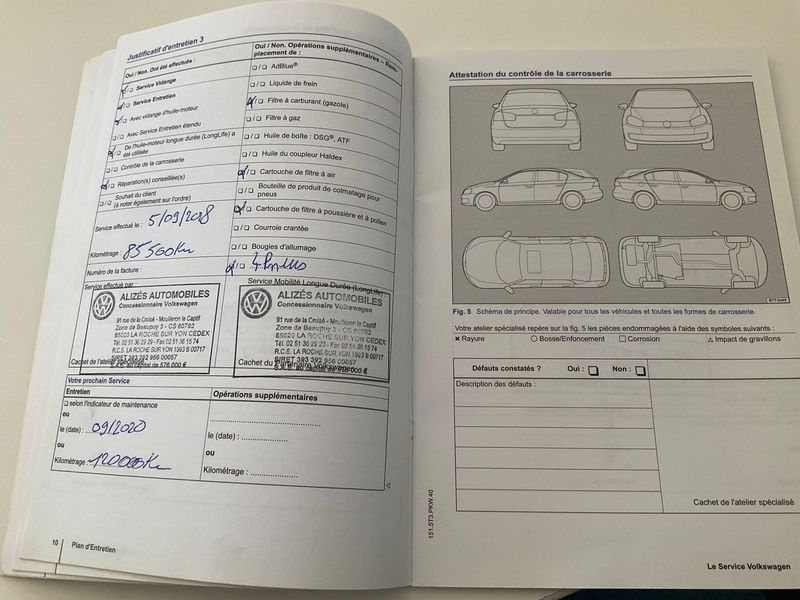 Justificatif d'entretien 3
Oui / Non. Ont été effectués :
Service Vidange
Service Entretien
Avec vidange d'huile-moteur
Avec Service Entretien étendu
De l'huile-moteur longue durée (LongLife) a
été utilisée
Contrôle de la carrosserie
Réparation(s) conseillée(s)
Souhait du client
(à noter également sur l'ordre)
Service effectué le : 5/09/2018
Kilométrage : 85500Km
Numéro de la facture :
Oui / Non. Opérations supplémentaires – Rem-
placement de :
AdBlue®
Liquide de frein
Filtre à carburant (gazole)
Filtre à gaz
Huile de boîte : DSG®, ATF
Huile du coupleur Haldex
Cartouche de filtre à air
Bouteille de produit de colmatage pour
pneus
Cartouche de filtre à poussière et à pollen
Courroie crantée
Bougies d'allumage
4 Pneus
Service effectué par :
ALIZÉS AUTOMOBILES
Concessionnaire Volkswagen
91 rue de la Croisé - Mouilleron le Captif
Zone de Beaupuy 3 - CS 60792
85020 LA ROCHE SUR YON CEDEX
Tél. 02 51 36 29 29 - Fax 02 51 36 15 74
R.C.S. LA ROCHE SUR YON 1993 B 00717
SIRET 393 392 956 00057
S.A.S. au capital de 576 000 €
Cachet de l'atelier spécialisé
Service Mobilité Longue Durée (LongLife)
ALIZÉS AUTOMOBILES
Concessionnaire Volkswagen
91 rue de la Croisé - Mouilleron le Captif
Zone de Beaupuy 3 - CS 60792
85020 LA ROCHE SUR YON CEDEX
Tél. 02 51 36 29 29 - Fax 02 51 36 15 74
R.C.S. LA ROCHE SUR YON 1993 B 00717
SIRET 393 392 956 00057
S.A.S. au capital de 576 000 €
Cachet du Partenaire Volkswagen
Votre prochain Service
Entretien
selon l'indicateur de maintenance
ou
le (date) : 09/2020
ou
Kilométrage : 120000Km
Opérations supplémentaires
le (date) : ....................
ou
Kilométrage : ................
10
Plan d'Entretien
Attestation du contrôle de la carrosserie
Fig. 5 Schéma de principe. Valable pour tous les véhicules et toutes les formes de carrosserie.
Votre atelier spécialisé repère sur la fig. 5 les pièces endommagées à l'aide des symboles suivants :
× Rayure ○ Bosse/Enfoncement □ Corrosion △ Impact de gravillons
Défauts constatés ? Oui : □ Non : □
Description des défauts :
Cachet de l'atelier spécialisé
151.5T3.PKW.40
Le Service Volkswagen